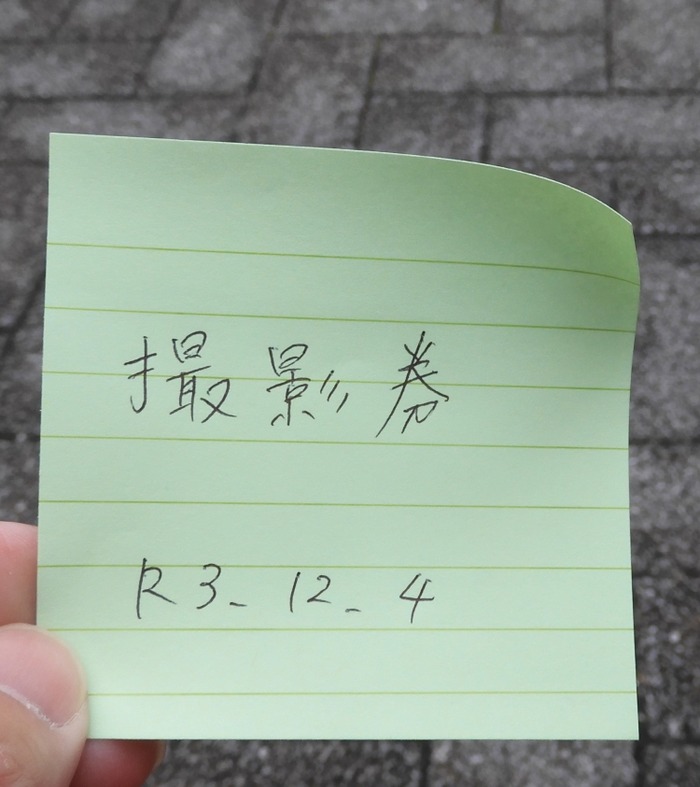 撮影券
R3.12.4